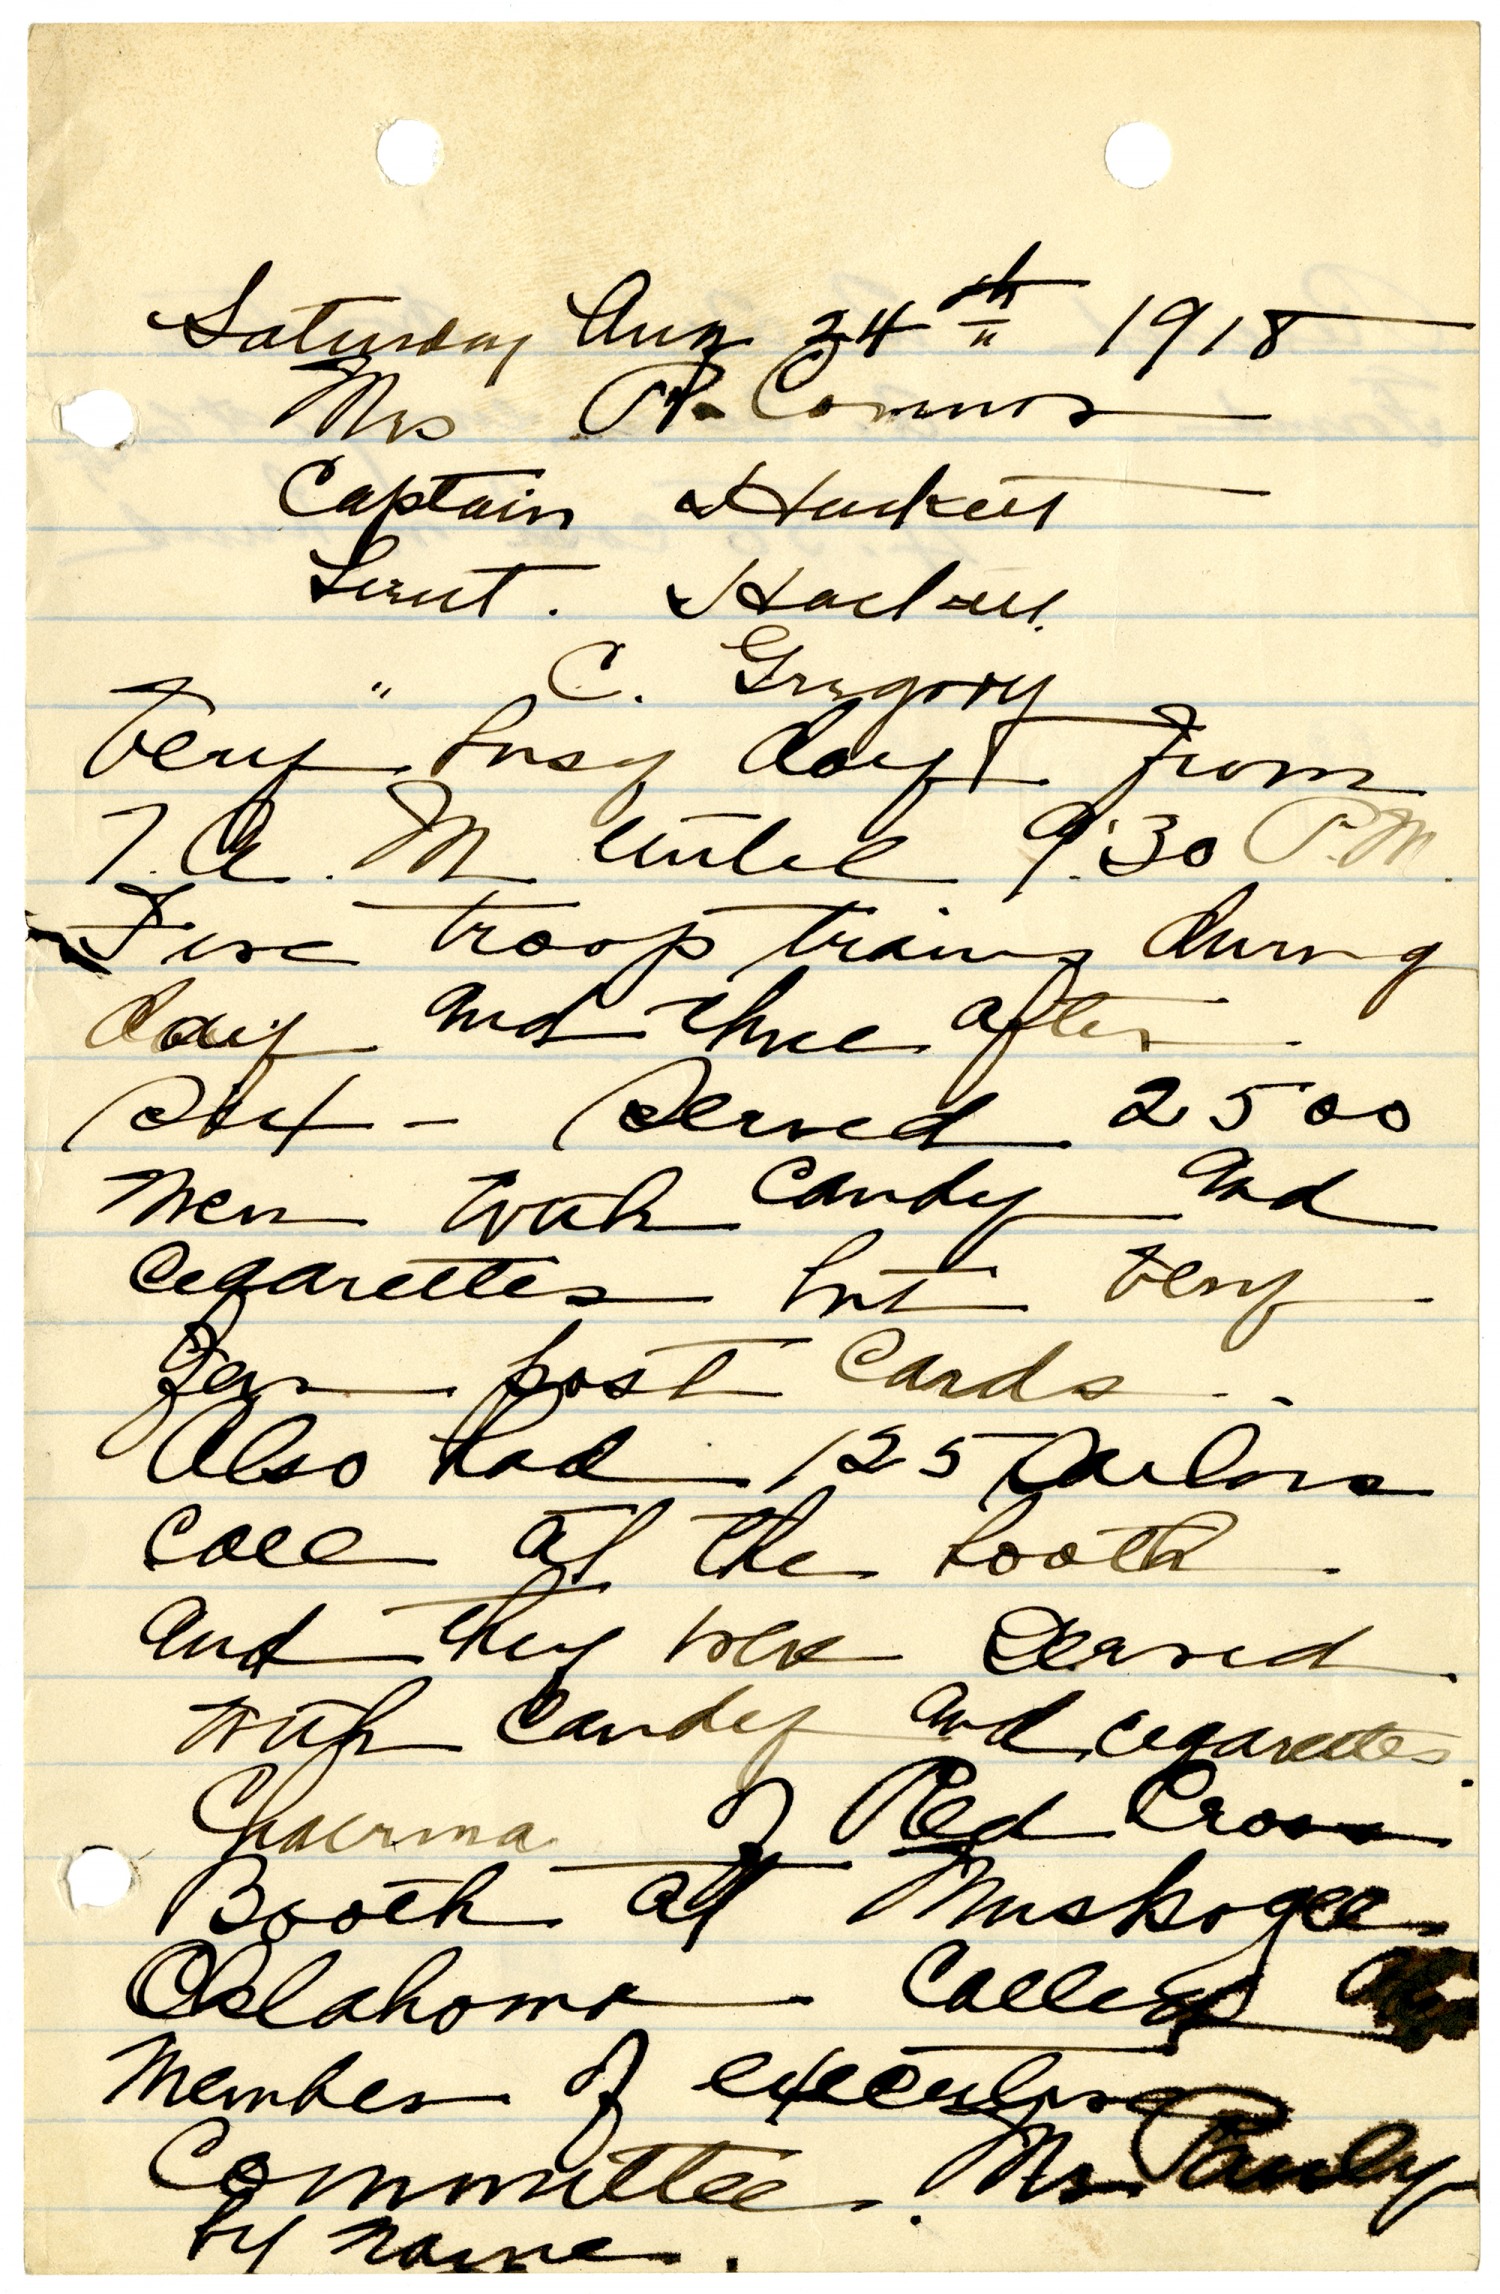 Saturday Aug 24th 1918
Mrs R. Connors
Captain Hackett
Lieut. Hackett.
" C. Gregory
Very busy day from
7. A. M until 9:30 P.M.
Five troop trains during
day and three after
six - Served 2500
men with candy and
cigarettes but very
few post cards..
Also had 125 Sailors
call at the booth.
and they were served.
with candy and cigarettes.
Chairma of Red Cross
Booth at Muskogee
Oklahoma called
member of executive
Committee. Pauly
by name.